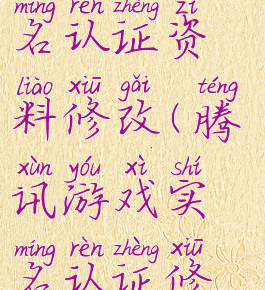 míng rèn zhèng zī
名认证资
liào xiū gǎi téng
料修改(腾
xùn yóu xì shí
讯游戏实
míng rèn zhèng xiū
名认证修